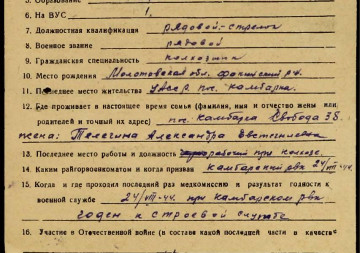 5. Образование
6. На ВУС 1,
7. Должностная квалификация рядовой-стрелок
8. Военное звание рядовой
9. Гражданская специальность колхозник
10. Место рождения Молотовская обл. р-н.
11. Последнее место жительства УАССР пос. Камбарка
12. Где проживает в настоящее время семья (фамилия, имя и отчество жены или
родителей и точный их адрес) пос. Камбарка Свобода 38.
жена: Телегина Александра
13. Последнее место работы и должность рабочий при
14. Каким райгорвоенкоматом и когда призван Камбарский рвк 24/VIII-44г.
15. Когда и где проходил последний раз медкомиссию и результат годности к
военной службе 24/VIII-44г. при Камбарском рвк
годен к строевой службе
16. Участие в Отечественной войне (в составе какой последней части в качестве